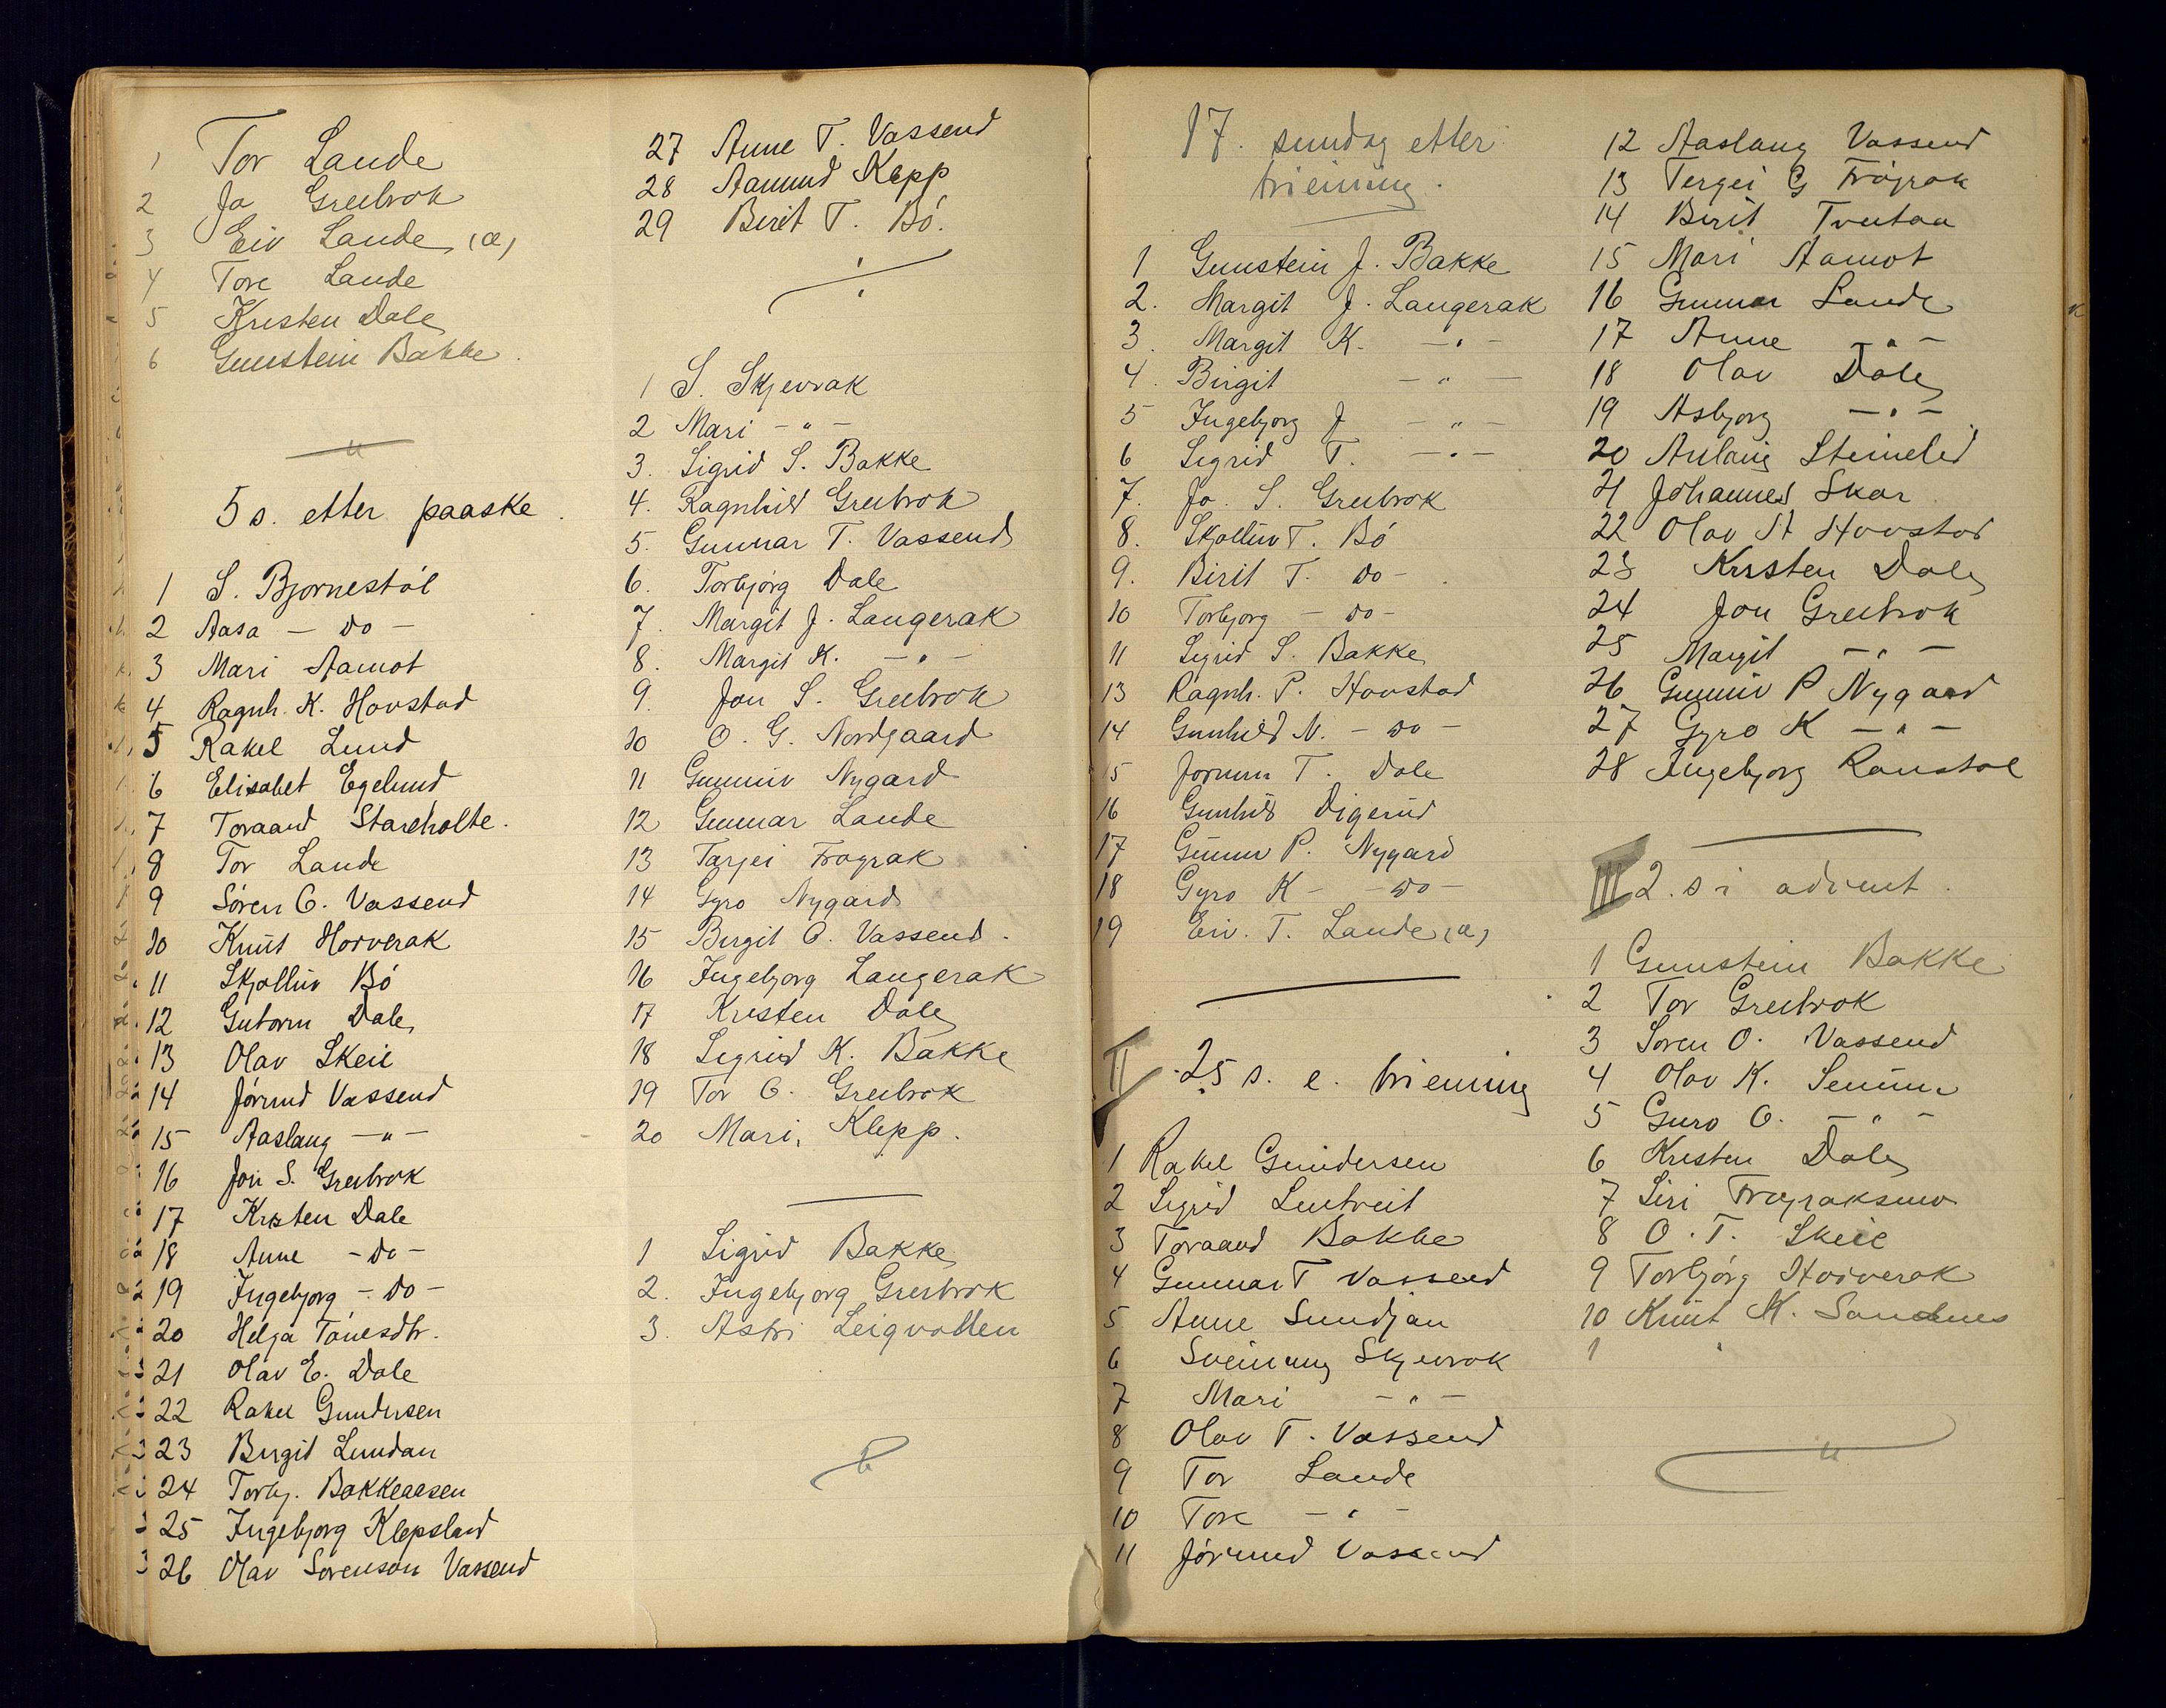 1 Tor Lande
2 Jo Greibrok
3 Eiv Lande (a)
4 Tore Lande
5 Kristen Dale
6 Gunstein Bakke.
— " —
5 s. etter paaske.
1 S. Bjornestöl
2 Aasa — do —
3 Mari Aamot
4 Ragnh. K. Hovstad
5 Rakel Lund
6 Elisabet Egelund
7 Toraand Stareholte.
8 Tor Lande
9 Sören O. Vassend
10 Knut Horverak
11 Skjolluv Bö
12 Gutorm Dale
13 Olav Skeie
14 Jörund Vassend
15 Aaslaug — " —
16 Jon S. Greibrok
17 Kristen Dale
18 Anne — do —
19 Ingebjorg — do —
20 Helga Tönesdtr.
21 Olav E. Dale
22 Rakel Gundersen
23 Birgit Lundan
24 Torbj. Bakkeaasen
25 Ingebjorg Klepsland
26 Olav Sorenson Vassend
27 Anne T. Vassend
28 Aamund Klepp
29 Birit T. Bö.
1 S. Skjevrak
2 Mari — " —
3. Sigrid S. Bakke
4. Ragnhild Greibrok
5. Gunnar T. Vassend
6. Torbjörg Dale
7. Margit J. Langerak
8. Margit K. — " —
9. Jon S. Greibrok
10 O. G. Nordgaard
11 Gunnuv Nygard
12 Gunnar Lande
13 Tarjei Fröyrak
14 Gyro Nygard
15 Birgit O. Vassend.
16 Ingebjorg Langerak
17 Kristen Dale
18 Sigrid K. Bakke
19 Tor O. Greibrok
20 Mari Klepp.
1 Sigrid Bakke
2. Ingebjorg Greibrok
3. Astri Leiqvollen
17. sundag etter
trieining.
1 Gunstein J. Bakke
2. Margit J. Langerak
3. Margit K. — " —
4. Birgit — " —
5 Ingebjorg J — " —
6 Sigrid T. — " —
7. Jo. S. Greibrok
8. Skjolluv T. Bö
9. Birit T. do —
10 Torbjorg — do —
11 Sigrid S. Bakke
13 Ragnh. P. Hovstad
14 Gunhild N. — do —
15 Jorunn T. Dale
16 Gunhild Digerud
17 Gunnuv P. Nygard
18 Gyro K — do —
19 Eiv. T. Lande (a)
II 25 s. e. trieining
1 Rakel Gundersen
2 Sigrid Lentveit
3 Toraand Bakke
4 Gunnar T Vassend
5 Anne Sundjan
6 Sveinung Skjevrak
7 Mari — " —
8 Olav T. Vassend
9 Tor Lande
10 Tore — " —
11 Jörund Vassend
12 Aaslaug Vassend
13 Tergei G Fröyrak
14 Birit Tveitaa
15 Mari Aamot
16 Gunnar Lande
17 Anne — " —
18 Olav Dale
19 Asbjorg — " —
20 Aslaug Steinelid
21 Johannes Skar
22 Olav H Hovstad
23 Kristen Dale
24 Jon Greibrok
25 Margit — " —
26 Gunnuv P Nygaard
27 Gyro K — " —
28 Ingebjorg Ranstöl
III 2. s i advent.
1 Gunstein Bakke
2 Tor Greibrok
3 Soren O. Vassend
4 Olav K. Senum
5 Guro O. — " —
6 Kristen Dale
7 Siri Fröyraksmo
8 O. T. Skeie
9 Torbjörg Horverak
10 Knut K. Sandnes
1
"